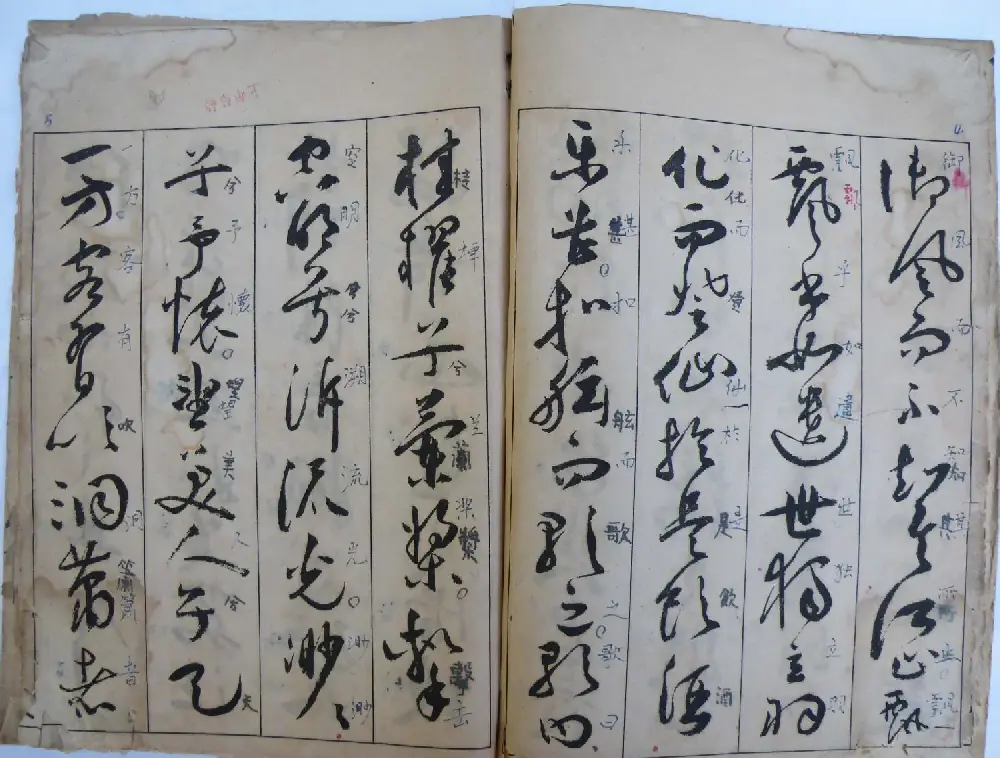 御風而不知其所止飄
飄乎如遺世獨立羽
化而登仙於是飲酒
樂甚扣舷而歌之歌曰
桂櫂兮蘭槳擊
空明兮泝流光渺〻
兮予懷望美人兮天
一方客有吹洞簫者